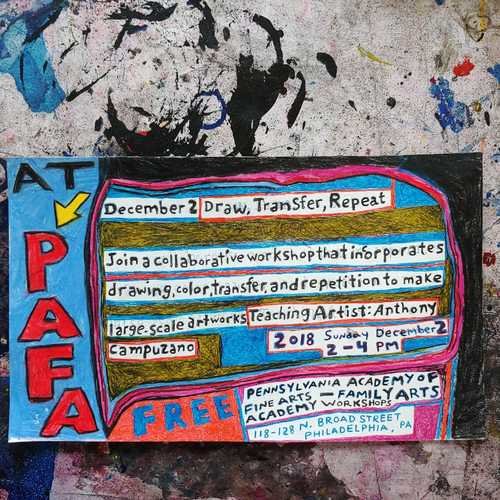 AT
PAFA
December 2 Draw, Transfer, Repeat
Join a collaborative workshop that inforporates
drawing, color, transfer, and repetition to make
large-scale artworks Teaching Artist: Anthony
Campuzano
2018 Sunday December 2
2-4 PM
FREE
PENNSYLVANIA ACADEMY OF
FINE ARTS — FAMILY ARTS
ACADEMY WORKSHOPS
118-128 N. BROAD STREET
PHILADELPHIA, PA